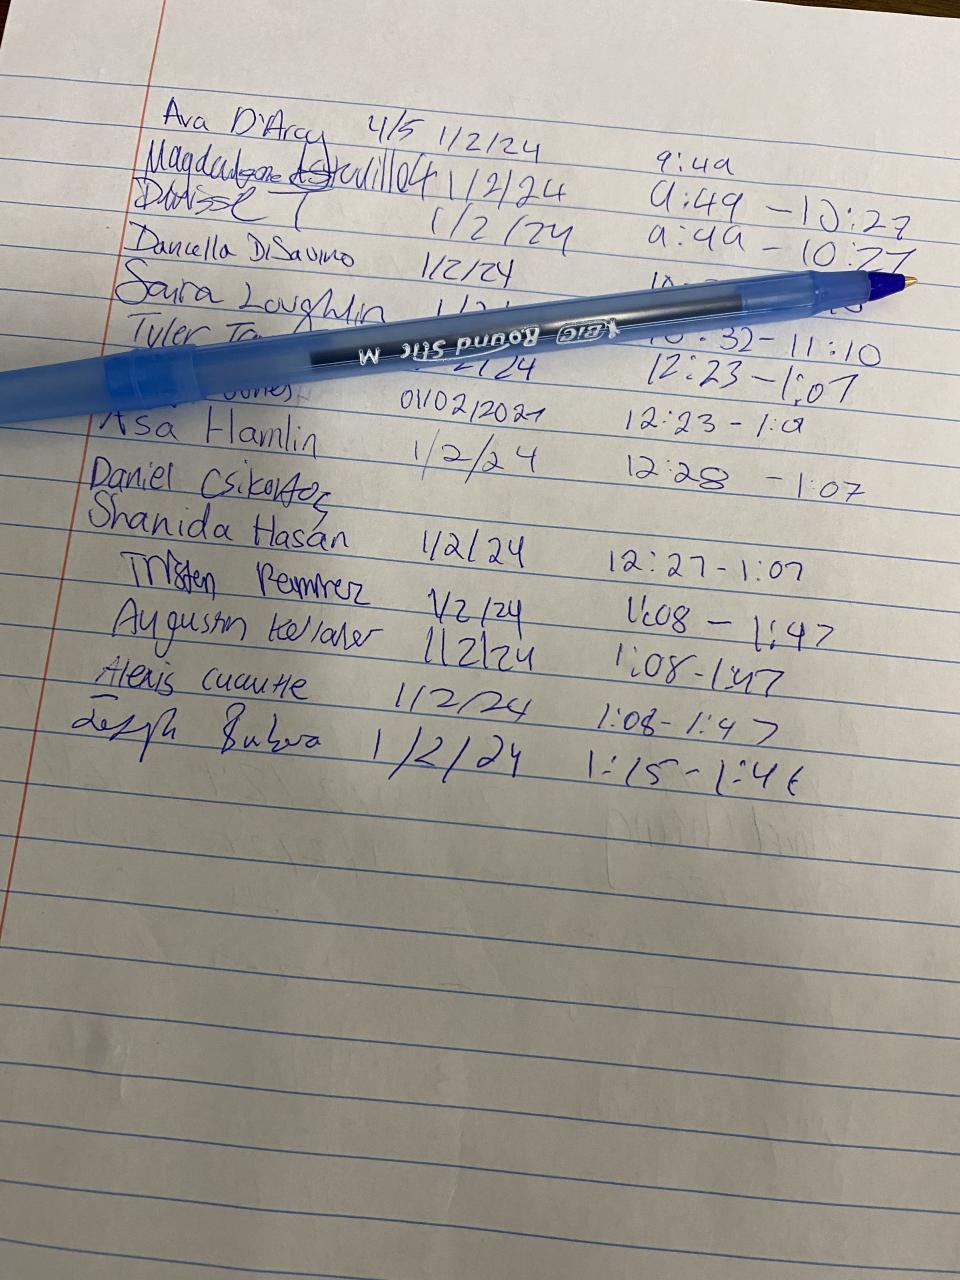 Ava D'Arcy 4/5 1/2/24 9:49
1/2/24 9:49 - 10:27
T 1/2/24 9:49 - 10:27
Daniella DiSavino 1/2/24
Saira Loughlin
Tyler 10:32-11:10
2/24 12:23-1:07
Jones 01/02/2024 12:23-1:0
Asa Hamlin 1/2/24 12:28 - 1:07
Daniel
Shanida Hasan 1/2/24 12:27-1:07
Tristen Ramirez 1/2/24 1:08 - 1:47
Augustin Kellaher 1/2/24 1:08-1:47
Alexis 1/2/24 1:08-1:47
Joseph 1/2/24 1:15-1:46
BIC Round Stic M